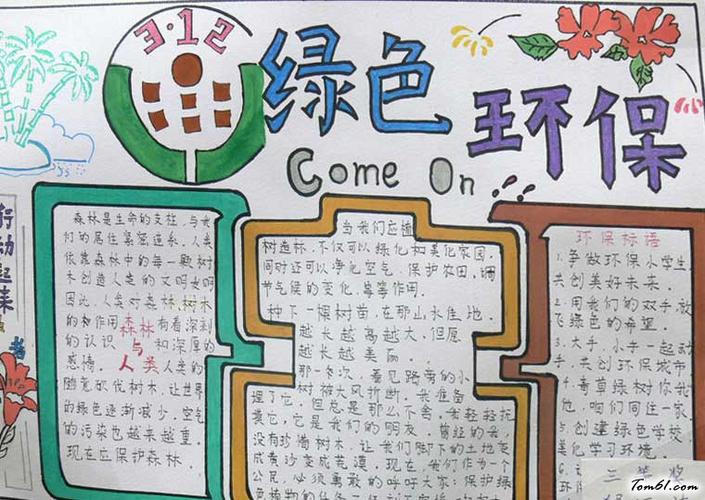 3·12
绿色
环保
Come On
行动起来
森林是生命的支柱,与我
们的居住紧密连系,人类
依靠森林中的每一颗树
木创造人类的文明文明
因此,人类对森林,树木
的和作用 有着深刻
的认识 和深厚的
感情。 人类的
森林
与
人类
随意砍伐树木,让世界
的绿色逐渐减少,空气
的污染也越来越重。
现在应保护森林.
当我们应植
树造林,不仅可以绿化和美化家园,
同时还可以净化空气,保护农田,调
节气候的变化,等等作用.
种下一棵树苗,在那山水佳地.
越长越高越大,但愿
越长越美丽
那一次,看见路旁的小
树被大风折断.我准备
埋了它,但总是那么不舍,
摸它,它是我们的朋友,曾经的我,
没有珍惜树木,让我们脚下的土地变
成黄沙变成荒漠,现在,我们作为一个
公民,必须勇敢的呼吁大家:保护绿
环保标语
1.争做环保小学生
共创美好未来.
2.用我们的双手放
飞绿色的希望.
3.大手小手一起动
手 共创环保城市
4.青草绿树你我
他,咱们同住一家
5.创建绿色学校,
美化学习环境.
6.
三等奖
Tom61.com